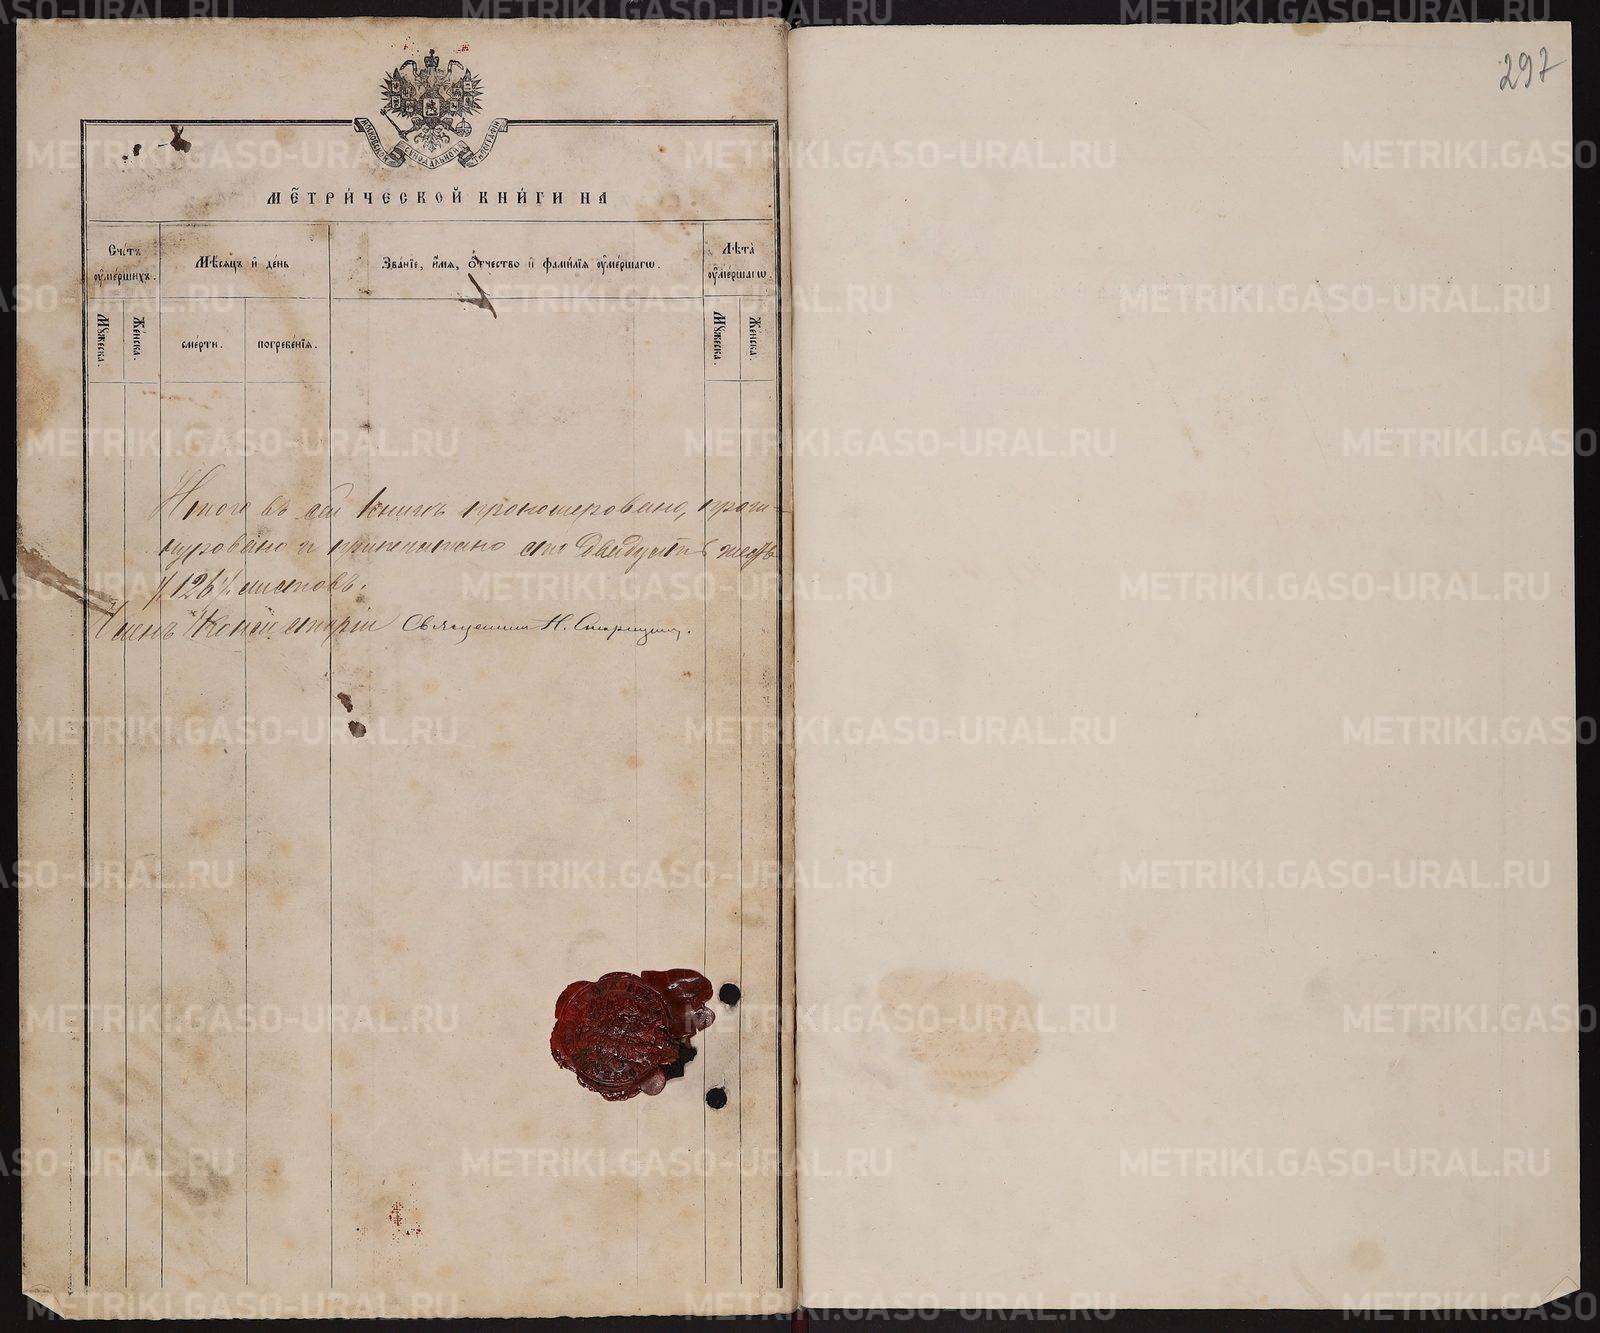 297
МОСКОВСКОЙ СѴНОДАЛЬНОЙ ТИПОГРАФІИ
МЕТРИ́ЧЕСКОЙ КНИ́ГИ НА
Сче́тъ ᲂу҆ме́ршихъ.
Мѣ́сяцъ и҆ де́нь
Зва́нїе, и҆́мѧ, ѻ҆́тчество и҆ фами́лїѧ ᲂу҆ме́ршагѡ.
Лѣ́та ᲂу҆ме́ршагѡ
Мꙋ́жеска.
Же́нска.
сме́рти.
погребе́нїѧ.
Мꙋ́жеска.
Же́нска.
Итого въ сей книгѣ прономеровано, прош-
нуровано и припечатано сто двадцать шесть
/126/ листовъ.
Членъ Консисторіи Священникъ Н.
METRIKI.GASO-URAL.RU